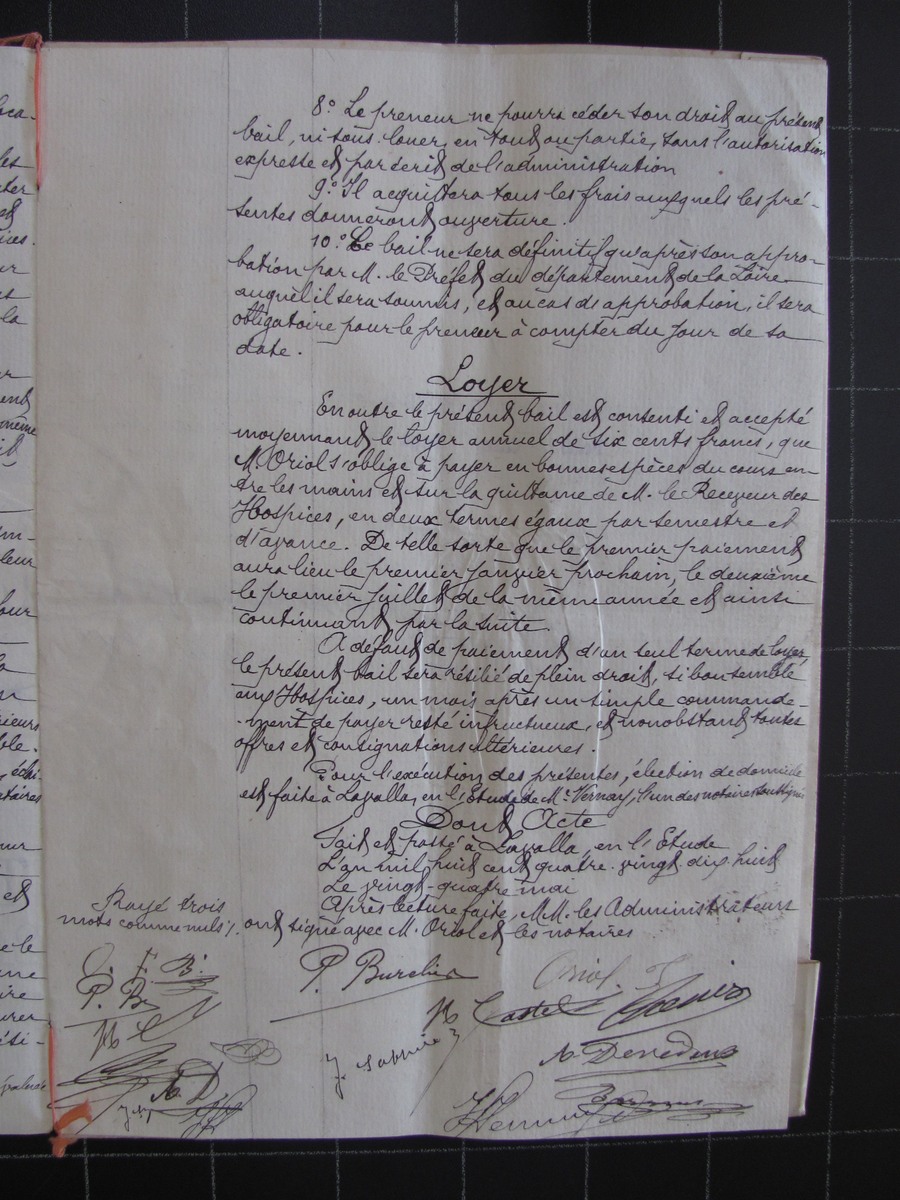 8° Le preneur ne pourra céder son droit au présent
bail, ni sous louer, en tout ou partie, sans l'autorisation
expresse et par écrit de l'administration
9° Il acquittera tous les frais auxquels les pré-
sentes donneront ouverture.
10° Ce bail ne sera définitif qu'après son appro-
bation par M. le Préfet du département de la Loire
auquel il sera soumis, et au cas de approbation, il sera
obligatoire pour le preneur à compter du jour de sa
date.
Loyer
En outre le présent bail est consenti et accepté
moyennant le loyer annuel de six cents francs, que
M. Oriol s'oblige à payer en bonnes espèces du cours en-
tre les mains et sur la quittance de M. le Receveur des
Hospices, en deux termes égaux par semestre et
d'avance. De telle sorte que le premier paiement
aura lieu le premier janvier prochain, le deuxième
le premier juillet de la même année et ainsi
continuant par la suite
A défaut de paiement d'un seul terme de loyer,
le présent bail sera résilié de plein droit, si bon semble
aux Hospices, un mois après un simple commande-
-ment de payer resté infructueux, et nonobstant toutes
offres et consignations ultérieures.
Pour l'exécution des présentes, élection de domicile
est faite à Lavalla, en l'Etude de Me Vernay, l'un des notaires soussignés
Dont Acte
Fait et passé à Lavalla, en l'Etude
L'an mil huit cent quatre-vingt dix huit
Le vingt-quatre mai
Après lecture faite, MM. les Administrateurs
ont signé avec M. Oriol et les notaires
Rayé trois
mots comme nuls
O. F B.
P. Burelier
Oriol. F
P. B
M Castel
M C
A. D